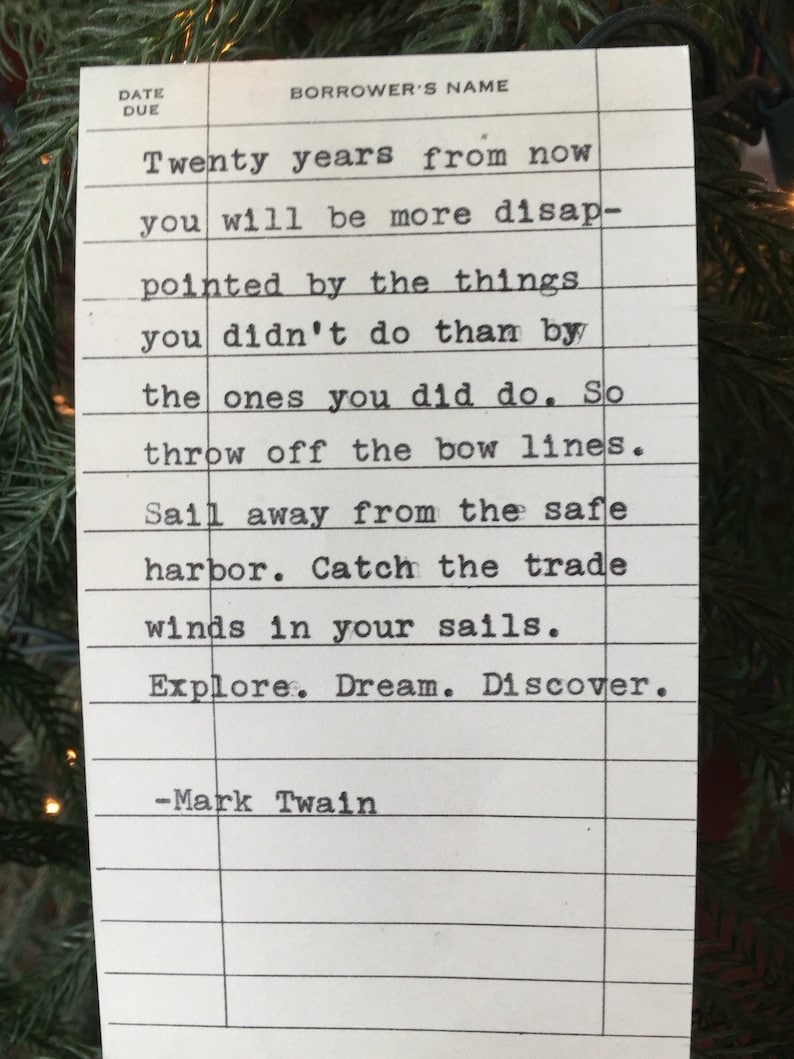 DATE DUE
BORROWER'S NAME
Twenty years from now
you will be more disap-
pointed by the things
you didn't do than by
the ones you did do. So
throw off the bow lines.
Sail away from the safe
harbor. Catch the trade
winds in your sails.
Explore. Dream. Discover.
-Mark Twain